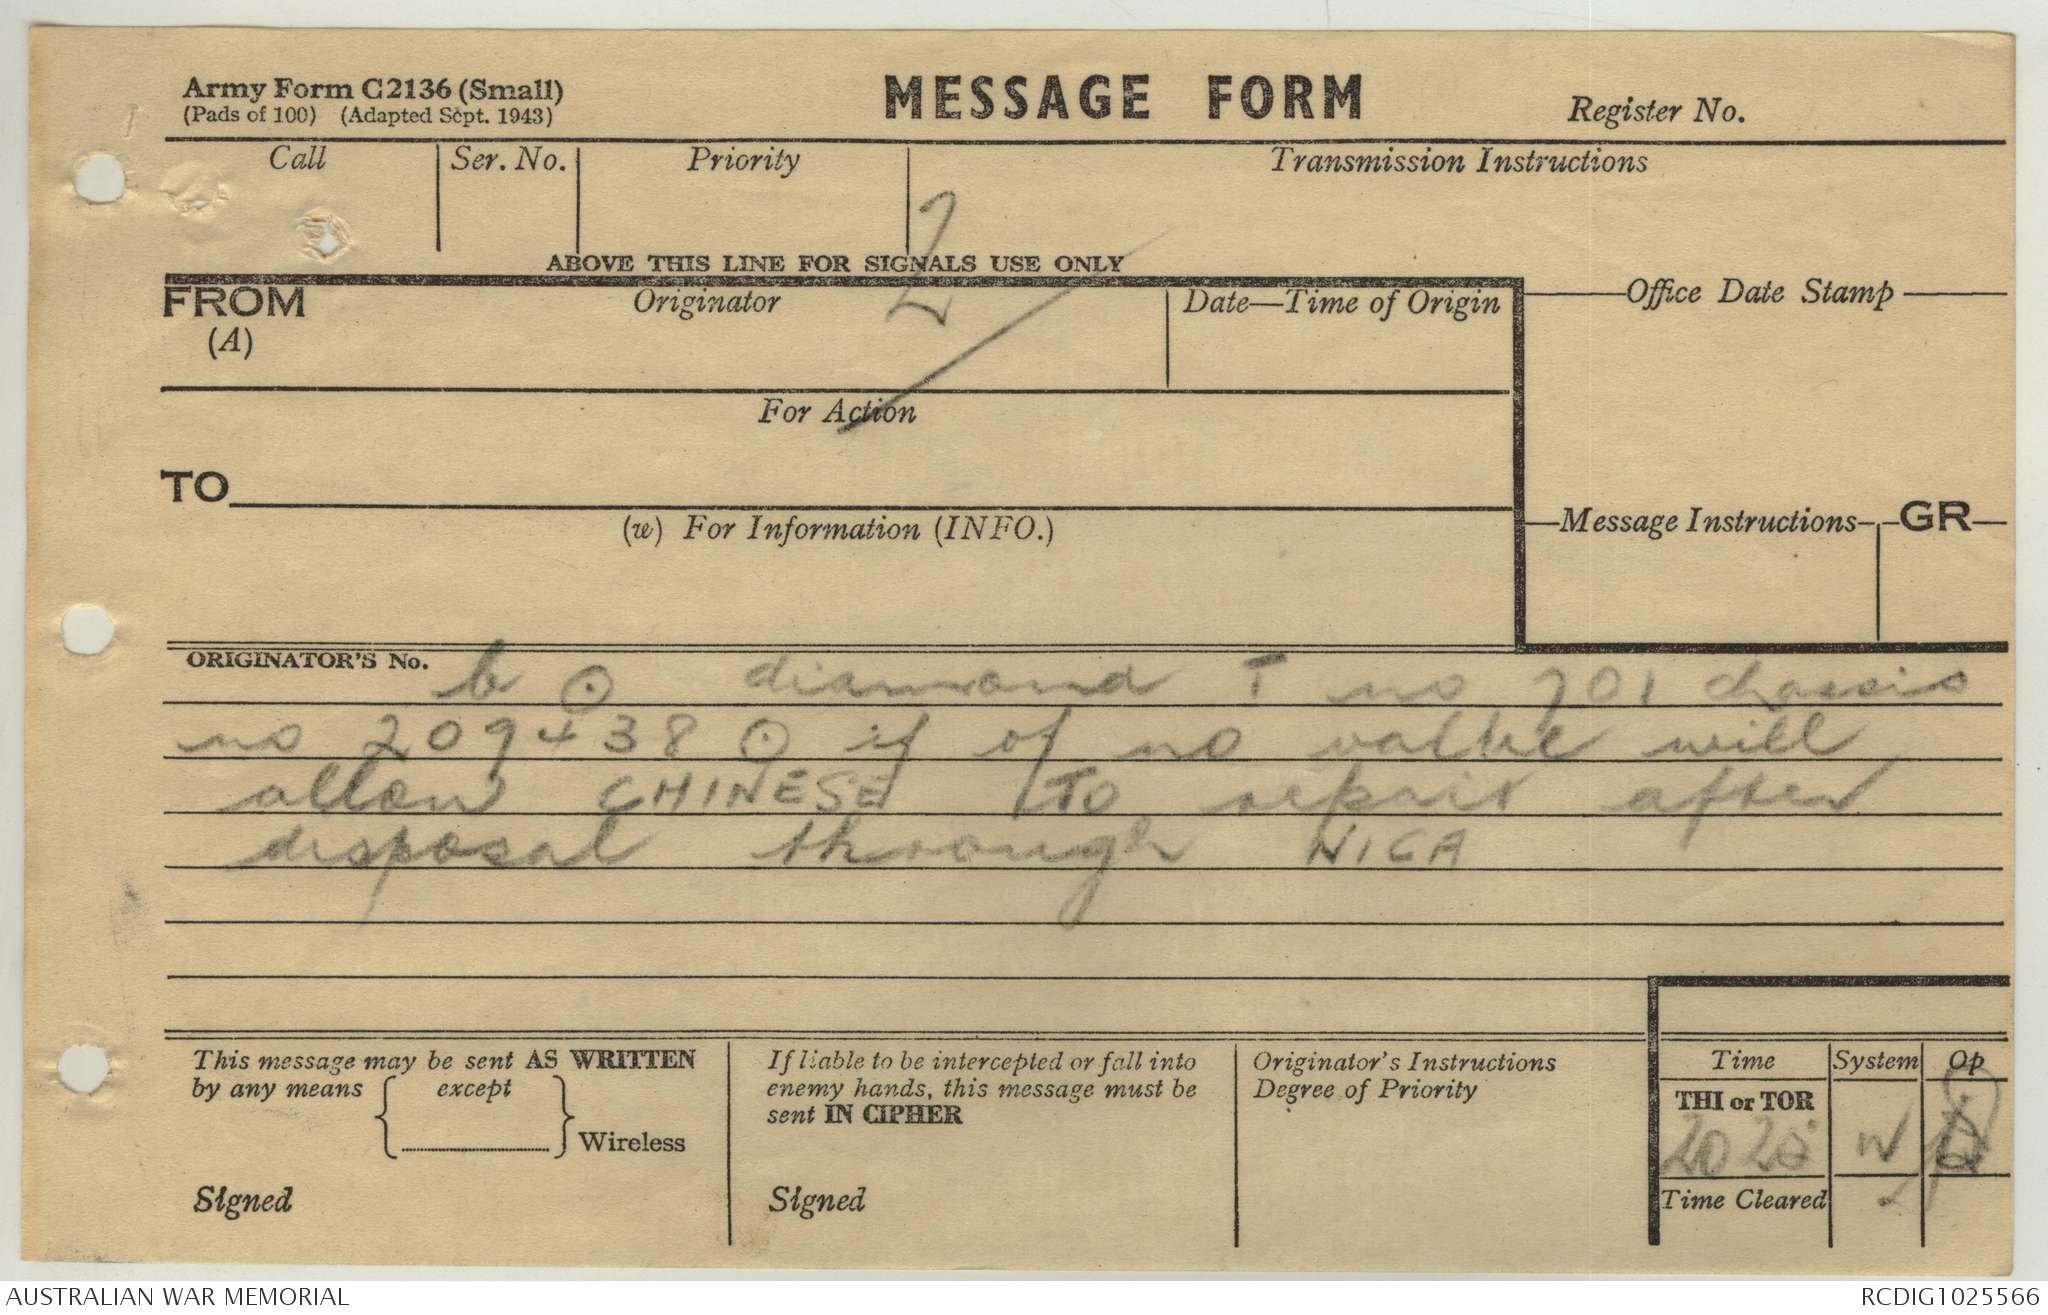 Army Form C2136 (Small)
(Pads of 100) (Adapted Sept. 1943)
MESSAGE FORM
Register No.
Call
Ser. No.
Priority
Transmission Instructions
2
ABOVE THIS LINE FOR SIGNALS USE ONLY
FROM
(A)
Originator
2
Date—Time of Origin
Office Date Stamp
For Action
TO
(w) For Information (INFO.)
Message Instructions
GR
ORIGINATOR'S No.
b ⊙ diamond T no 701 chassis
no 209438 ⊙ if of no value will
allow CHINESE TO repair after
disposal through NICA
This message may be sent AS WRITTEN
by any means except
Wireless
Signed
If liable to be intercepted or fall into
enemy hands, this message must be
sent IN CIPHER
Signed
Originator's Instructions
Degree of Priority
Time
System
Op
THI or TOR
2020
W
Time Cleared
AUSTRALIAN WAR MEMORIAL
RCDIG1025566